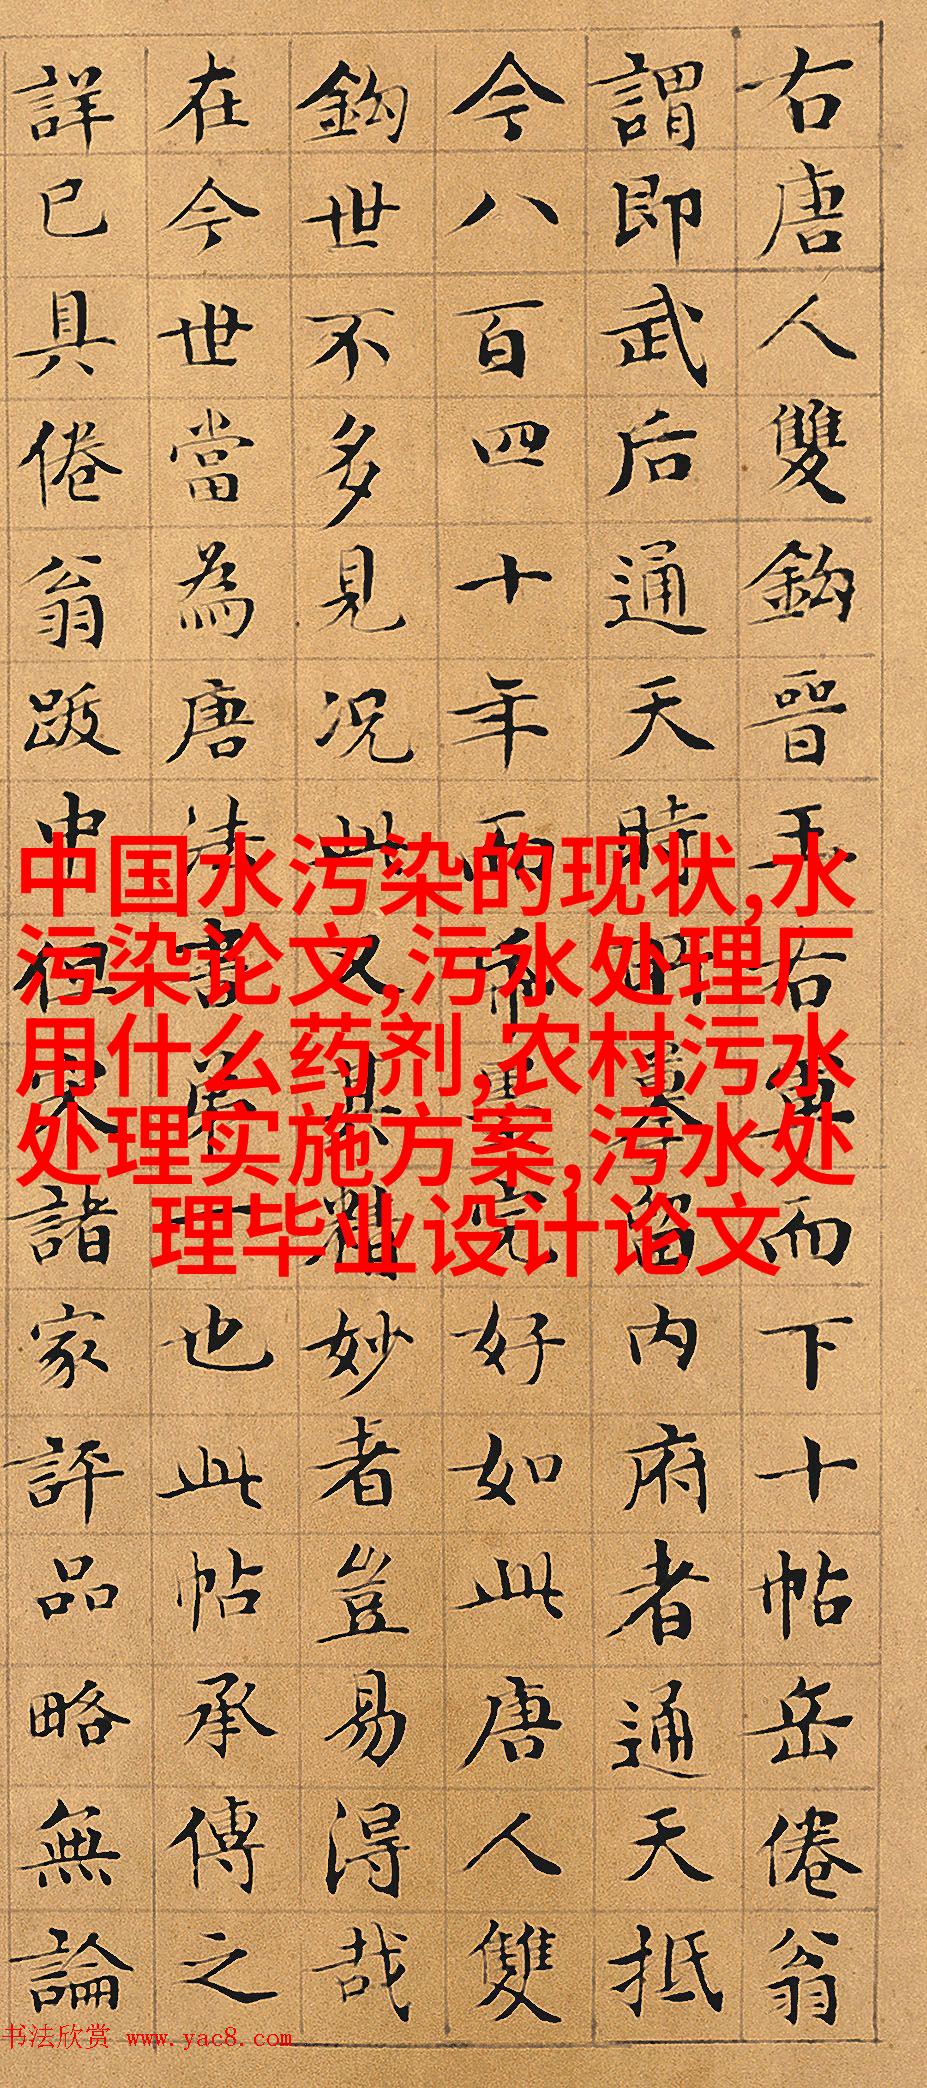 右唐人雙鈎晉王右軍而下十帖岳倦翁
謂即武后通天時所摹留内府者通天抵
今八百四十年而帋墨完好如此唐人雙
鈎世不多見况此又其精妙者豈易得哉
在今世當為唐法書第一也此帖承傳之
詳已具倦翁跋中但諸家評品略無論
中国水污染的现状,水
污染论文,污水处理厂
用什么药剂,农村污水
处理实施方案,污水处
理毕业设计论文
书法欣赏 www.yac8.com